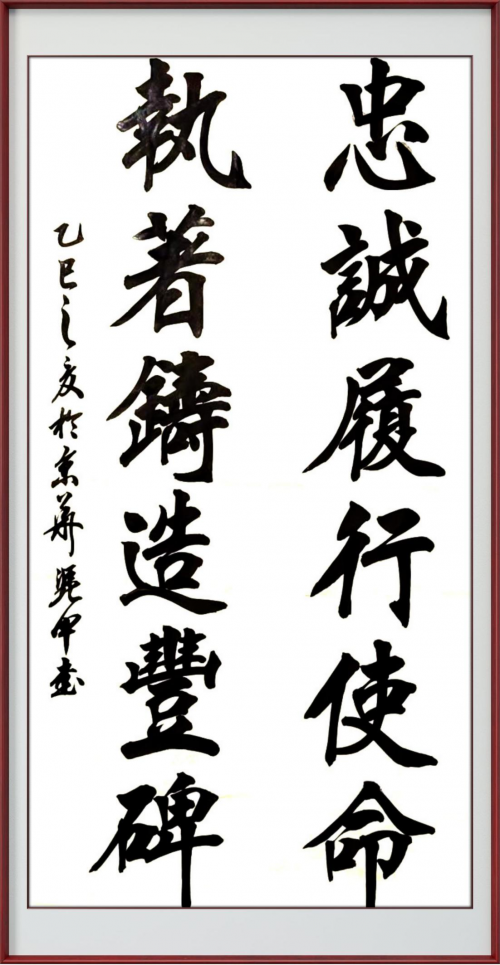 忠誠履行使命
執著鑄造豐碑
乙巳之夏於京華 書